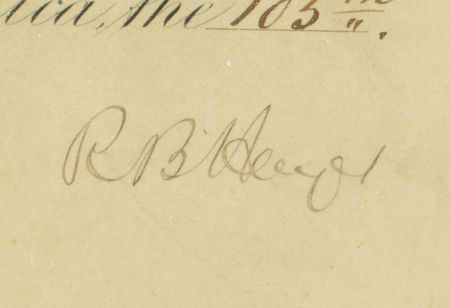 ica, the 103rd.
R B Hayes